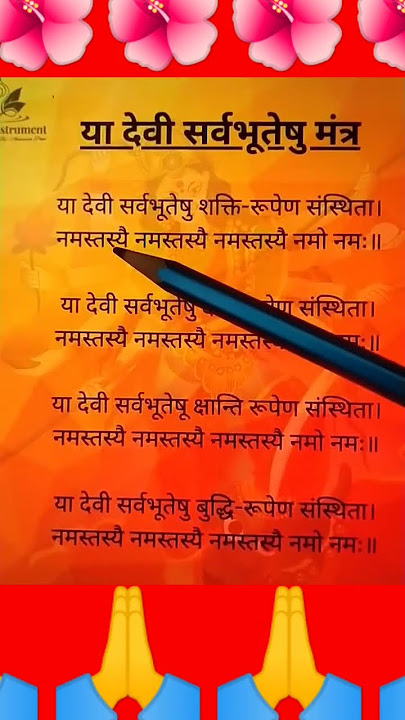 strument
या देवी सर्वभूतेषु मंत्र
या देवी सर्वभूतेषु शक्ति-रूपेण संस्थिता।
नमस्तस्यै नमस्तस्यै नमस्तस्यै नमो नमः॥
या देवी सर्वभूतेषु संस्थिता।
नमस्तस्यै नमस्तस्यै
या देवी सर्वभूतेषू क्षान्ति रूपेण संस्थिता।
नमस्तस्यै नमस्तस्यै नमस्तस्यै नमो नमः॥
या देवी सर्वभूतेषु बुद्धि-रूपेण संस्थिता।
नमस्तस्यै नमस्तस्यै नमस्तस्यै नमो नमः॥